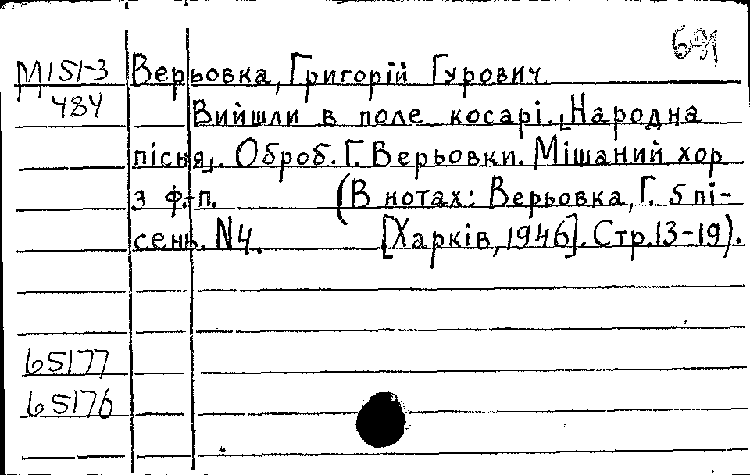 691
М151-3 Верьовка, Григорій Гурович
484 Вийшли в поле косарі. „Народна
пісня„. Оброб. Г. Верьовки. Мішаний хор
з ф.-п. (В нотах: Верьовка, Г. 5 пі-
сень. N4. [Харків, 1946]. Стр. 13-19).
65177
65176